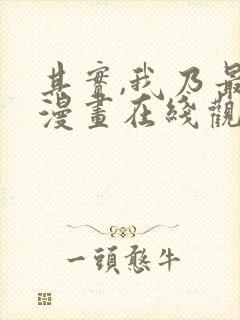 其實,我乃最
漫畫在綫觀
一頭憨牛